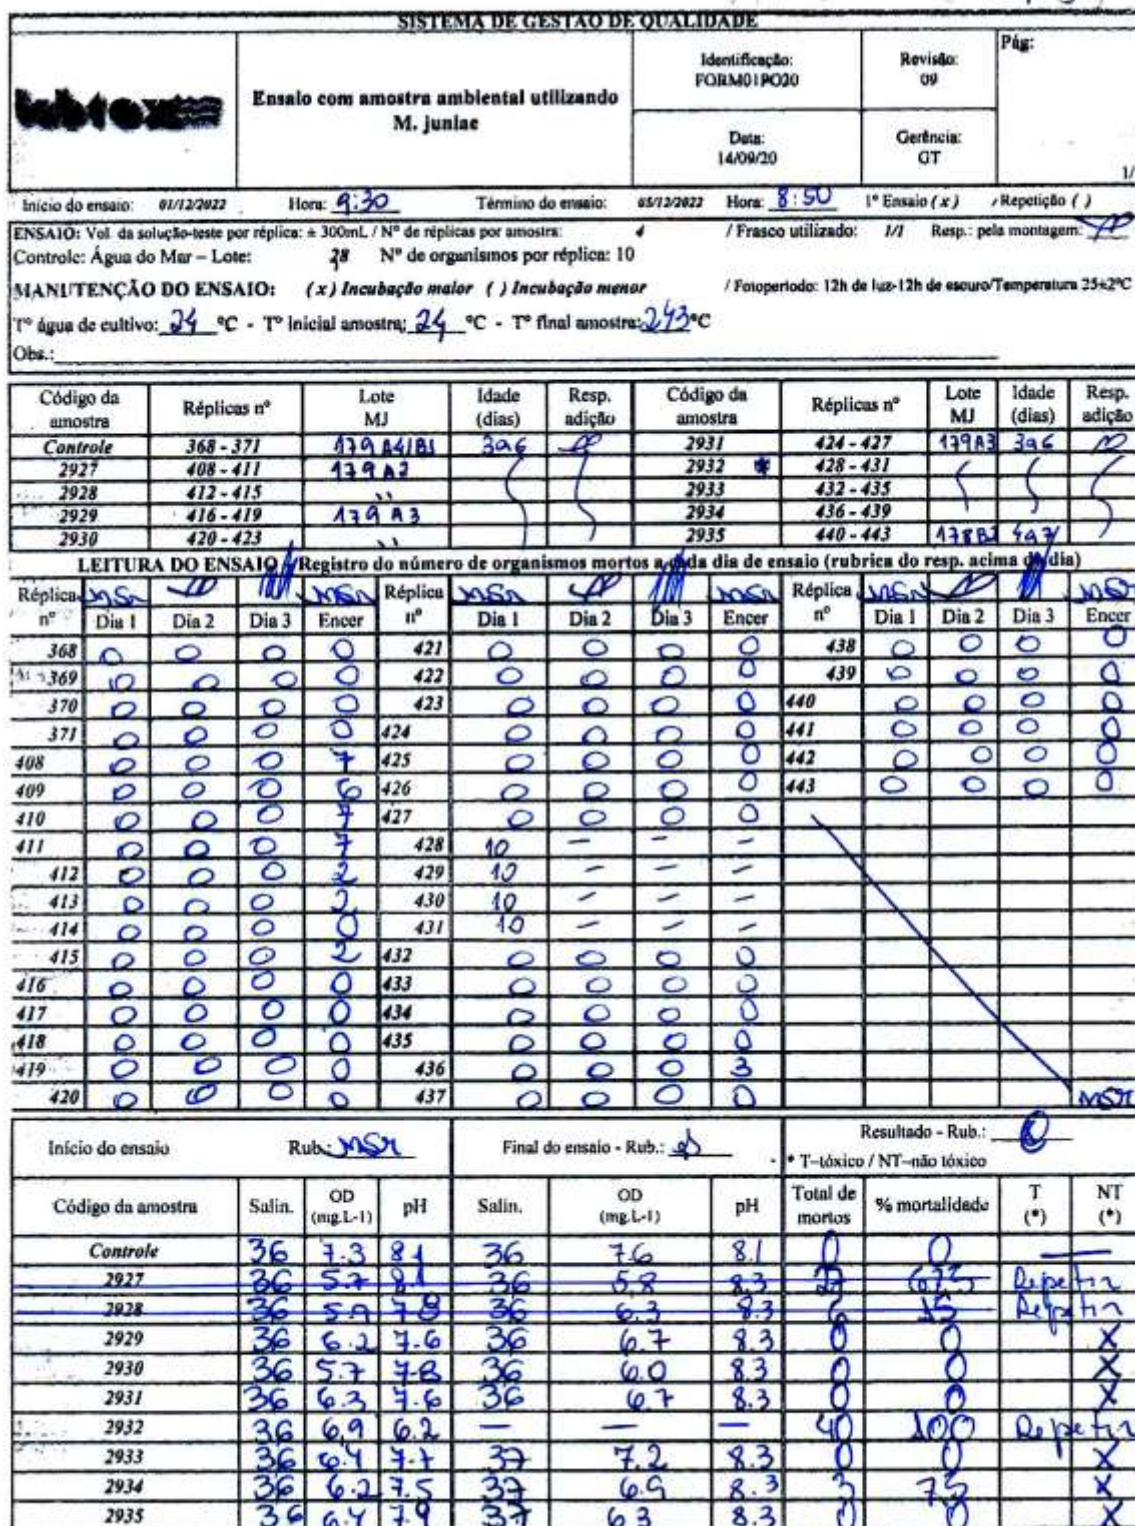 SISTEMA DE GESTÃO DE QUALIDADE
labtox
Ensaio com amostra ambiental utilizando
M. juniae
Identificação:
FORM01PO20
Revisão:
09
Pág:
Data:
14/09/20
Gerência:
GT
1/
Início do ensaio: 01/12/2022 Hora: 9:30 Término do ensaio: 05/12/2022 Hora: 8:50 1º Ensaio ( x ) / Repetição ( )
ENSAIO: Vol. da solução-teste por réplica: ± 300mL / Nº de réplicas por amostra: 4 / Frasco utilizado: 1/1 Resp.: pela montagem:
Controle: Água do Mar – Lote: 28 Nº de organismos por réplica: 10
MANUTENÇÃO DO ENSAIO: ( x ) Incubação maior ( ) Incubação menor / Fotoperíodo: 12h de luz-12h de escuro/Temperatura 25±2ºC
Tº água de cultivo: 24 ºC - Tº inicial amostra: 24 ºC - Tº final amostra: 24,3 ºC
Obs.:
Código da amostra Réplicas nº Lote MJ Idade (dias) Resp. adição Código da amostra Réplicas nº Lote MJ Idade (dias) Resp. adição
Controle 368 - 371 179 A4/B1 3a6 2931 424 - 427 179A3 3a6
2927 408 - 411 179 A2 2932 * 428 - 431
2928 412 - 415 " 2933 432 - 435
2929 416 - 419 179 A3 2934 436 - 439
2930 420 - 423 " 2935 440 - 443 178B2 4a7
LEITURA DO ENSAIO / Registro do número de organismos mortos a cada dia de ensaio (rubrica do resp. acima do dia)
Réplica nº MSR Dia 1 Dia 2 Dia 3 MSR Encer Réplica nº MSR Dia 1 Dia 2 Dia 3 MSR Encer Réplica nº MSR Dia 1 Dia 2 Dia 3 MSR Encer
368 0 0 0 0 421 0 0 0 0 438 0 0 0 0
369 0 0 0 0 422 0 0 0 0 439 0 0 0 0
370 0 0 0 0 423 0 0 0 0 440 0 0 0 0
371 0 0 0 0 424 0 0 0 0 441 0 0 0 0
408 0 0 0 7 425 0 0 0 0 442 0 0 0 0
409 0 0 0 6 426 0 0 0 0 443 0 0 0 0
410 0 0 0 7 427 0 0 0 0
411 0 0 0 7 428 10 – – –
412 0 0 0 2 429 10 – – –
413 0 0 0 2 430 10 – – –
414 0 0 0 0 431 10 – – –
415 0 0 0 2 432 0 0 0 0
416 0 0 0 0 433 0 0 0 0
417 0 0 0 0 434 0 0 0 0
418 0 0 0 0 435 0 0 0 0
419 0 0 0 0 436 0 0 0 3
420 0 0 0 0 437 0 0 0 0 MSR
Início do ensaio Rub.: MSR Final do ensaio - Rub.: Resultado - Rub.:
* T–tóxico / NT–não tóxico
Código da amostra Salin. OD (mg.L-1) pH Salin. OD (mg.L-1) pH Total de mortos % mortalidade T (*) NT (*)
Controle 36 7.3 8.1 36 7.6 8.1 0 0 —
2927 36 5.7 8.1 36 5.8 8.3 27 67,5 Repetir
2928 36 5.9 7.8 36 6.3 8.3 6 15 Repetir
2929 36 6.2 7.6 36 6.7 8.3 0 0 X
2930 36 5.7 7.8 36 6.0 8.3 0 0 X
2931 36 6.3 7.6 36 6.7 8.3 0 0 X
2932 36 6,9 6.2 — — — 40 100 Repetir
2933 36 6.4 7.7 37 7.2 8.3 0 0 X
2934 36 6.2 7.5 37 6.9 8.3 3 7,5 X
2935 36 6.4 7.9 37 6.3 8.3 0 0 X